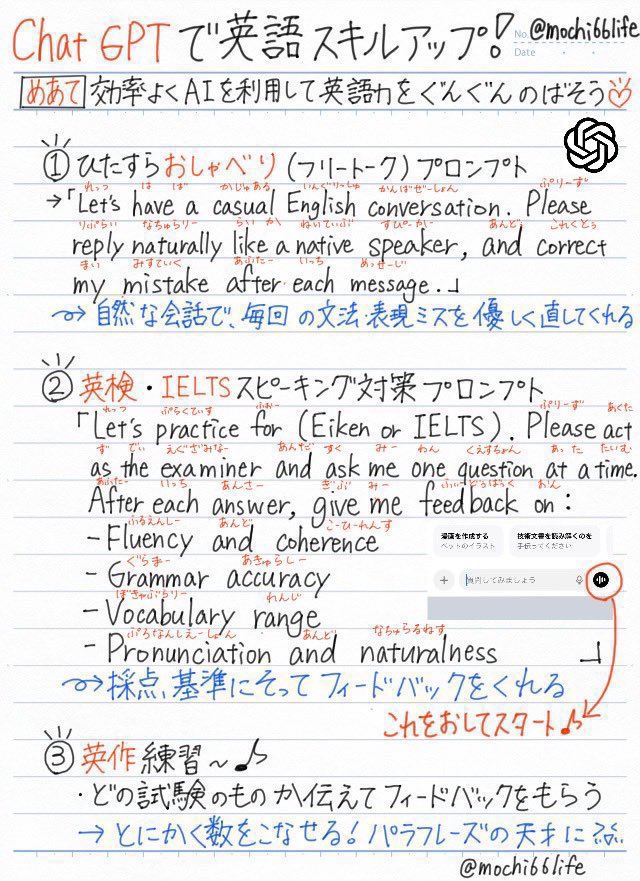 Chat GPTで英語スキルアップ!
No. @mochi66life
Date
めあて 効率よくAIを利用して英語力をぐんぐんのばそう♡
① ひたすらおしゃべり(フリートーク)プロンプト
れっつ はば かじゅある いんぐりっしゅ かんばせーしょん ぷりーず
→「Let's have a casual English conversation. Please
りぷらい なちゅらりー らいか ねいてぃぶ すぴーかー あんど これくとぅ
reply naturally like a native speaker, and correct
まい みすていく あふたー いっち めっせーじ
my mistake after each message.」
→ 自然な会話で、毎回の文法・表現ミスを優しく直してくれる
② 英検・IELTSスピーキング対策プロンプト
れっつ ぷらくてぃす ふぉー ぷりーず あくた
「Let's practice for (Eiken or IELTS). Please act
ず でぃ えぐざみなー あんだ すく みー わん くえすちょん あった たいむ
as the examiner and ask me one question at a time.
あふたー いっち あんさー ぎぶ みー ふぃーどばっく おん
After each answer, give me feedback on:
ふるえんしー あんど こーひーれんす
-Fluency and coherence
ぐらまー あきゅらしー
-Grammar accuracy
ぼきゃぶらりー れんじ
-Vocabulary range
ぷろなんしえーしょん あんど なちゅらるねす
-Pronunciation and naturalness 」
漫画を作成する
ペットのイラスト
技術文書を読み解くのを
手伝ってください
質問してみましょう
→採点基準にそってフィードバックをくれる
これをおしてスタート♪
③ 英作練習~♪
・どの試験のものか伝えてフィードバックをもらう
→ とにかく数をこなせる! パラフレーズの天才に
@mochi66life